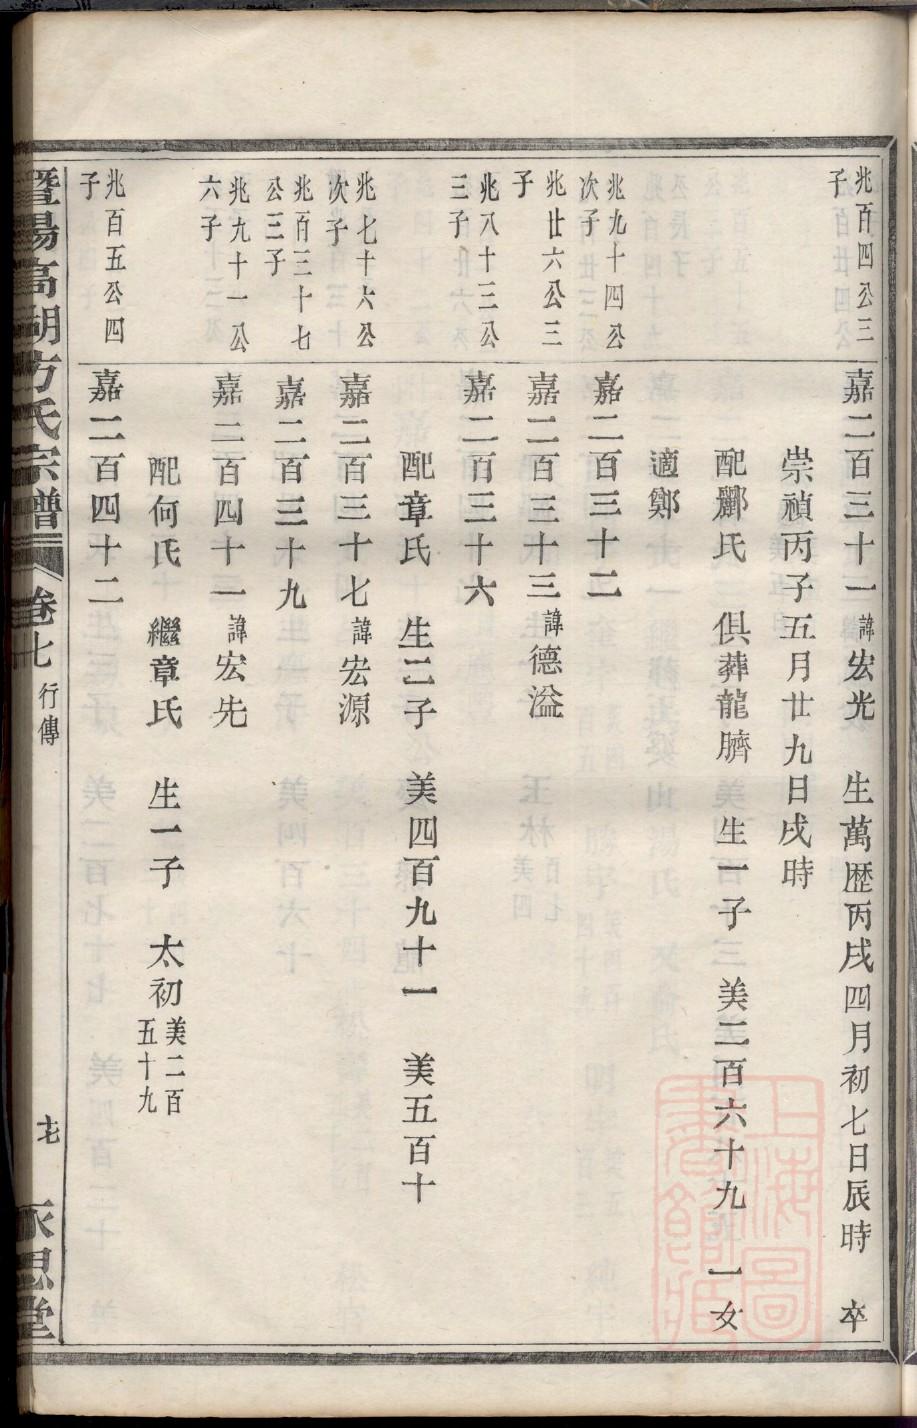 兆百四公三子
嘉二百三十一諱宏光　生萬歷丙戌四月初七日辰時　卒
崇禎丙子五月廿九日戌時
配酈氏　俱葬龍臍　生一子　美二百六十九　一女
適鄭
兆九十四公次子
嘉二百三十二
兆廿六公三子
嘉二百三十三諱德溢
兆八十三公三子
嘉二百三十六
配章氏　生二子　美四百九十一　美五百十
兆七十六公次子
嘉二百三十七諱宏源
兆百三十七公三子
嘉二百三十九
兆九十一公六子
嘉二百四十一諱宏先
配何氏　繼章氏　生一子　太初美二百五十九
兆百五公四子
嘉二百四十二
暨陽高湖方氏宗譜　卷七　行傳　永思堂
上海圖書館藏